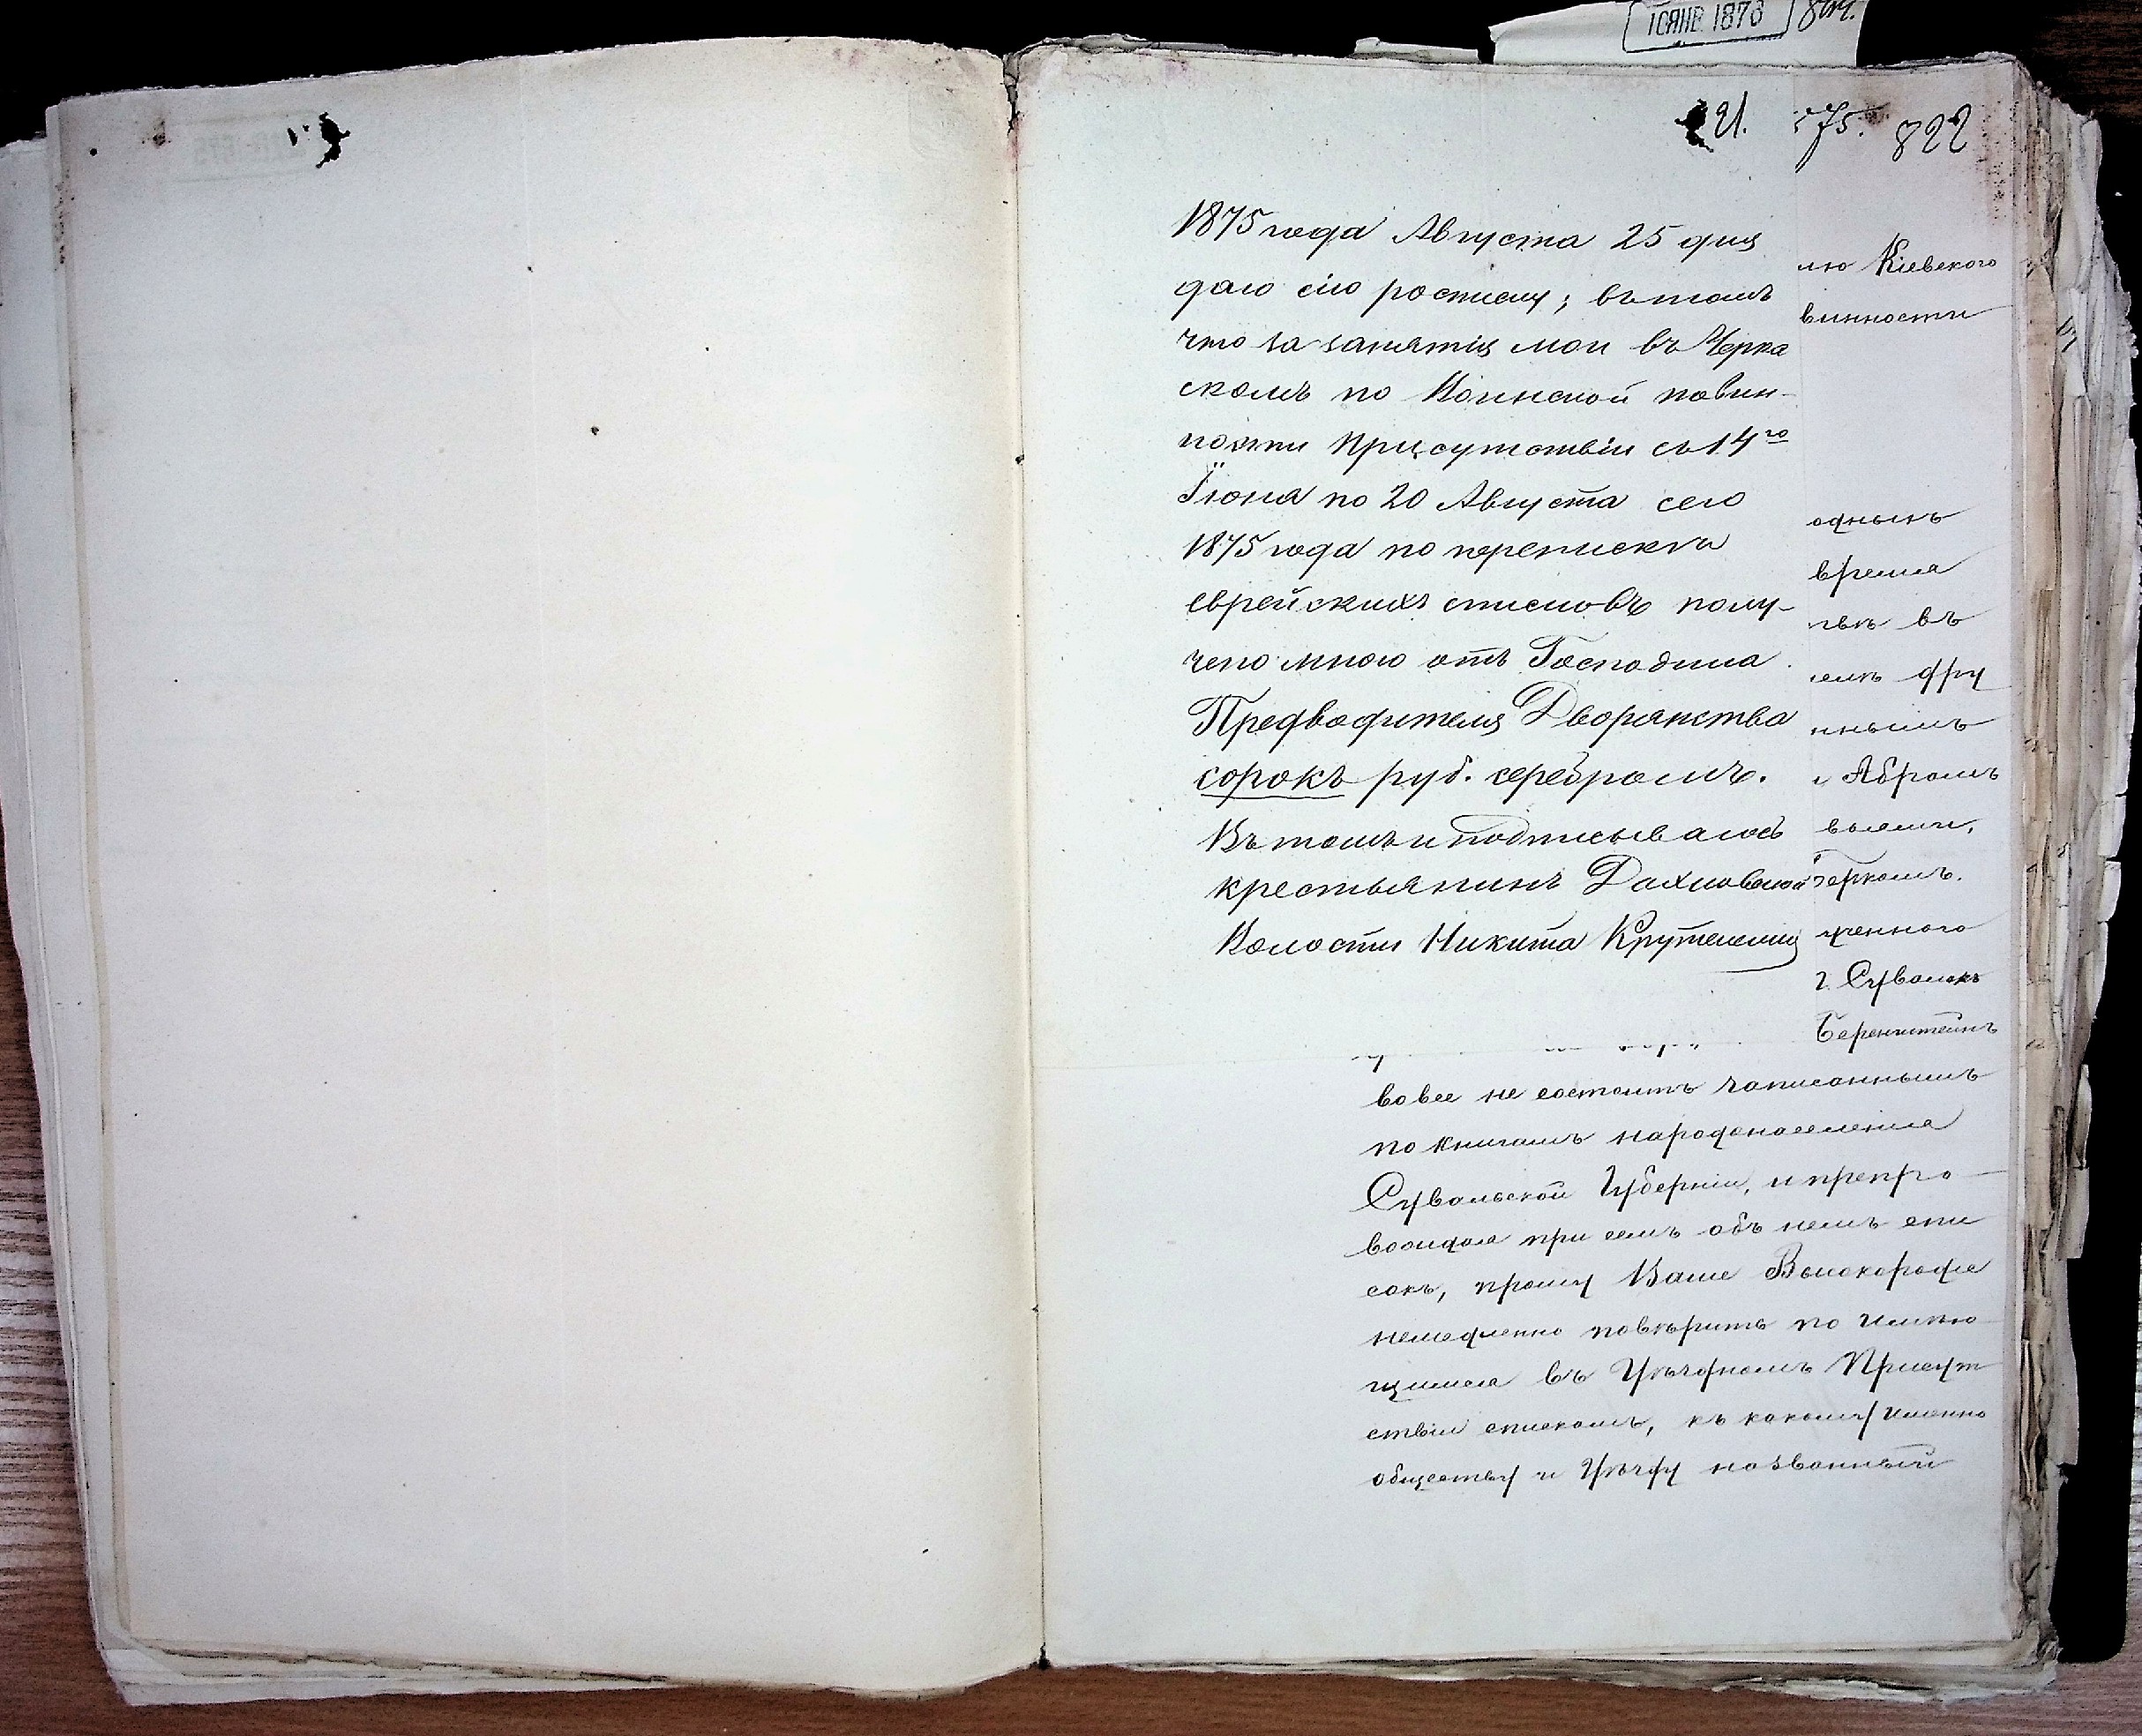 1СЯНВ. 1876
21. 575. 822
1875 года Августа 25 дня
даю сію росписку; въ томъ
что за занятія мои въ Черка
скомъ по Воинской повин-
ности Присутствіи съ 14го
Іюня по 20 Августа сего
1875 года по перепискѣ
еврейскихъ списковъ полу-
чено мною отъ Господина
Предводителя Дворянства
сорокъ руб. серебромъ.
Въ томъ и подписываюсь
крестьянинъ Дахновской
Волости Никита Крутенький
лю Кіевского
винности
однымъ
время
въ
дру
ннымъ
Абрамъ
ченного
г. Сувалкъ
Беренштейнъ
вовсе не состоитъ записаннымъ
по книгамъ народонаселенія
Сувальской Губерніи, и препро-
вождая при семъ объ немъ спи
сокъ, прошу Ваше Высокородіе
немедленно повѣрить по имѣю
щимся въ Уѣздномъ Присут
ствіи спискамъ, къ какому именно
обществу и Уѣзду названный